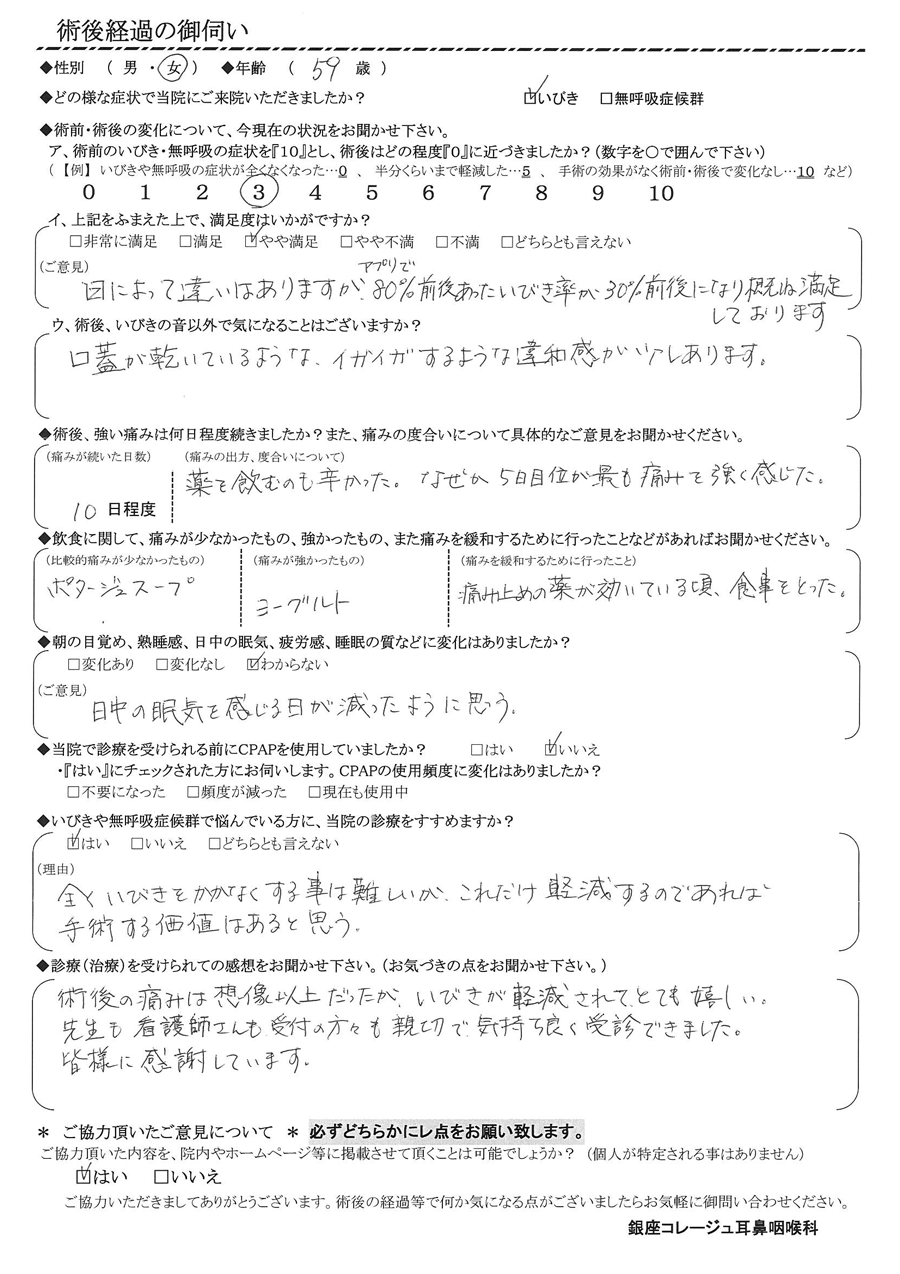 術後経過の御伺い
◆性別 ( 男 ・ 女 ) ◆年齢 ( 59 歳 )
◆どの様な症状で当院にご来院いただきましたか? ☑いびき □無呼吸症候群
◆術前・術後の変化について、今現在の状況をお聞かせ下さい。
ア、術前のいびき・無呼吸の症状を『10』とし、術後はどの程度『0』に近づきましたか?(数字を〇で囲んで下さい)
(【例】 いびきや無呼吸の症状が全くなくなった…0 、 半分くらいまで軽減した…5 、 手術の効果がなく術前・術後で変化なし…10 など)
0 1 2 3 4 5 6 7 8 9 10
イ、上記をふまえた上で、満足度はいかがですか?
□非常に満足 □満足 ☑やや満足 □やや不満 □不満 □どちらとも言えない
(ご意見)
アプリで
日によって違いはありますが、80%前後あったいびき率が、30%前後になり概ね満足
しております
ウ、術後、いびきの音以外で気になることはございますか?
口蓋が乾いているような、イガイガするような違和感が少しあります。
◆術後、強い痛みは何日程度続きましたか?また、痛みの度合いについて具体的なご意見をお聞かせください。
(痛みが続いた日数) (痛みの出方、度合いについて)
薬を飲むのも辛かった。なぜか5日目位が最も痛みを強く感じた。
10 日程度
◆飲食に関して、痛みが少なかったもの、強かったもの、また痛みを緩和するために行ったことなどがあればお聞かせください。
(比較的痛みが少なかったもの) (痛みが強かったもの) (痛みを緩和するために行ったこと)
ポタージュスープ ヨーグルト 痛み止めの薬が効いている頃、食事をとった。
◆朝の目覚め、熟睡感、日中の眠気、疲労感、睡眠の質などに変化はありましたか?
□変化あり □変化なし ☑わからない
(ご意見)
日中の眠気を感じる日が減ったように思う。
◆当院で診療を受けられる前にCPAPを使用していましたか? □はい ☑いいえ
・『はい』にチェックされた方にお伺いします。CPAPの使用頻度に変化はありましたか?
□不要になった □頻度が減った □現在も使用中
◆いびきや無呼吸症候群で悩んでいる方に、当院の診療をすすめますか?
☑はい □いいえ □どちらとも言えない
(理由)
全くいびきをかかなくする事は難しいが、これだけ軽減するのであれば
手術する価値はあると思う。
◆診療(治療)を受けられての感想をお聞かせ下さい。(お気づきの点をお聞かせ下さい。)
術後の痛みは想像以上だったが、いびきが軽減されて、とても嬉しい。
先生も看護師さんも受付の方々も親切で気持ち良く受診できました。
皆様に感謝しています。
＊ ご協力頂いたご意見について ＊ 必ずどちらかにレ点をお願い致します。
ご協力頂いた内容を、院内やホームページ等に掲載させて頂くことは可能でしょうか? (個人が特定される事はありません)
☑はい □いいえ
ご協力いただきましてありがとうございます。術後の経過等で何か気になる点がございましたらお気軽に御問い合わせください。
銀座コレージュ耳鼻咽喉科